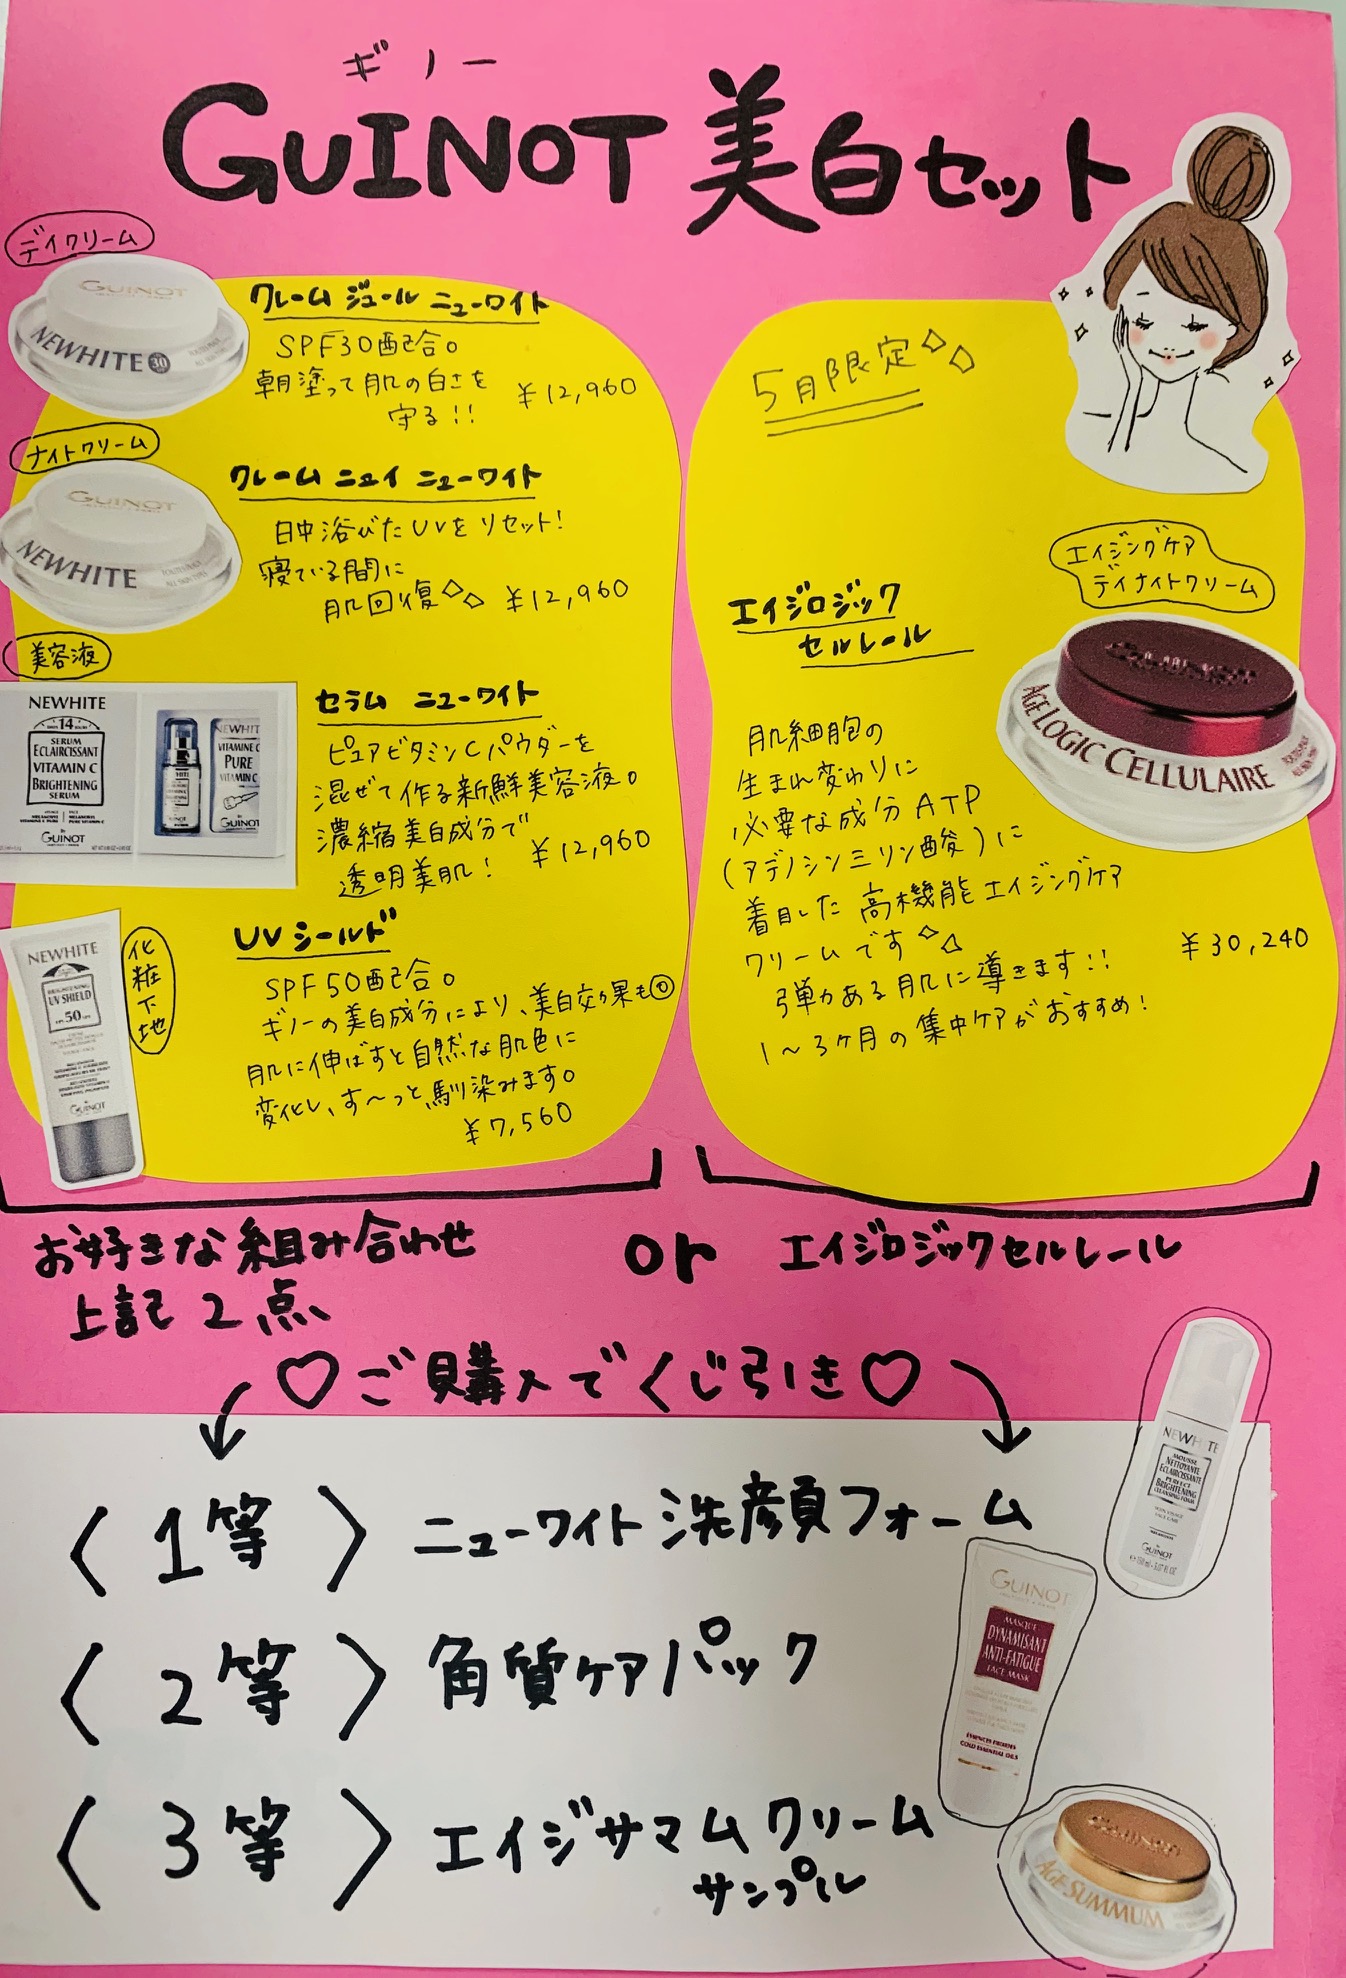 ギノー
GUINOT 美白セット
デイクリーム
GUINOT
NEWHITE 30
クレーム ジュール ニューワイト
SPF30配合。
朝塗って肌の白さを
守る!!
¥12,960
ナイトクリーム
GUINOT
NEWHITE
クレーム ニュイ ニューワイト
日中浴びたUVをリセット!
寝ている間に
肌回復
¥12,960
美容液
NEWHITE
14
SERUM
ECLAIRCISSANT
VITAMIN C
BRIGHTENING
SERUM
GUINOT
NEWHIT
VITAMINE C
PURE
VITAMIN C
GUINOT
セラム ニューワイト
ピュアビタミンCパウダーを
混ぜて作る新鮮美容液。
濃縮美白成分で
透明美肌!
¥12,960
化粧下地
NEWHITE
BRIGHTENING
UV SHIELD
SPF 50
GUINOT
UVシールド
SPF50配合。
ギノーの美白成分により、美白効果も◎
肌に伸ばすと自然な肌色に
変化し、す〜っと馴染みます。
¥7,560
5月限定
エイジングケア
デイナイトクリーム
GUINOT
AGE LOGIC CELLULAIRE
エイジロジック
セルレール
肌細胞の
生まれ変わりに
必要な成分ATP
(アデノシン三リン酸)に
着目した高機能エイジングケア
クリームです
弾力ある肌に導きます!!
¥30,240
1〜3ヶ月の集中ケアがおすすめ!
お好きな組み合わせ
上記2点
or
エイジロジックセルレール
♡ご購入でくじ引き♡
〈1等〉ニューワイト洗顔フォーム
NEWHITE
MOUSSE
NETTOYANTE
ECLAIRCISSANTE
PERFECT
BRIGHTENING
CLEANSING FOAM
GUINOT
〈2等〉角質ケアパック
GUINOT
MASQUE
DYNAMISANT
ANTI-FATIGUE
FACE MASK
〈3等〉エイジサマムクリーム
サンプル
GUINOT
AGE SUMMUM